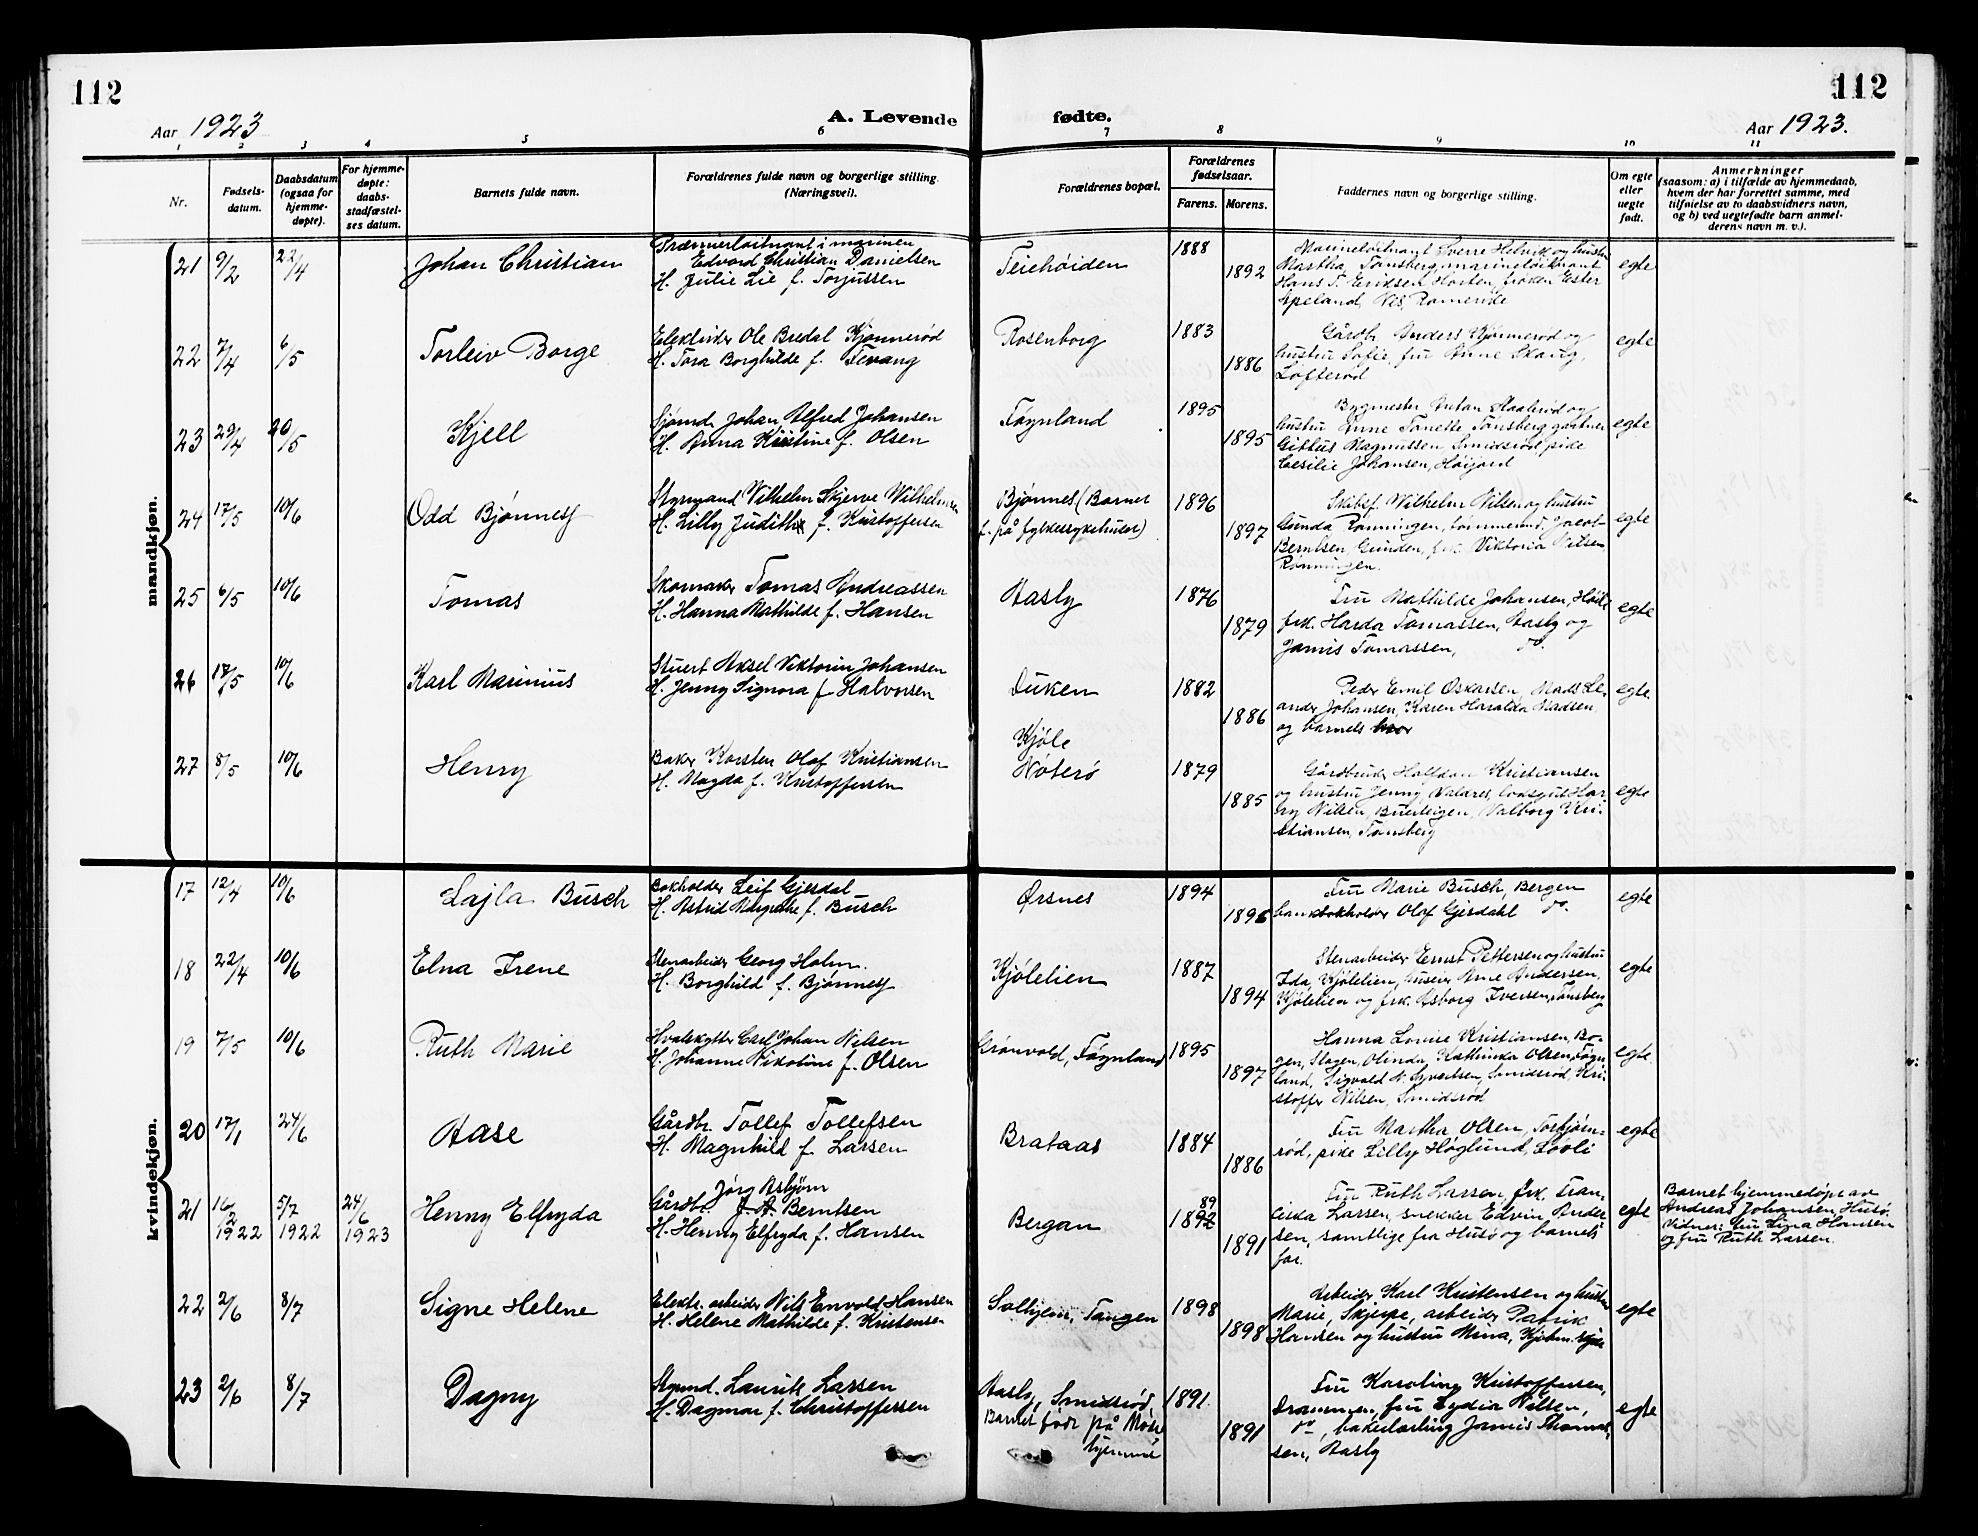 112
112
Aar 1923
A. Levende fødte.
Aar 1923.
1 2 3 4 5 6 7 8 9 10 11
Nr.
Fødsels-
datum.
Daabsdatum
(ogsaa for
hjemme-
døpte).
For hjemme-
døpte:
daabs-
stadfæstel-
ses datum.
Barnets fulde navn.
Forældrenes fulde navn og borgerlige stilling.
(Næringsvei).
Forældrenes bopæl.
Forældrenes
fødselsaar.
Farens. Morens.
Faddernes navn og borgerlige stilling.
Om egte
eller
uegte
født.
Anmerkninger
(saasom: a) i tilfælde av hjemmedaab,
hvem der har forrettet samme, med
tilføielse av to daabsvidners navn,
og b) ved uegtefødte barn anmel-
derens navn m. v.).
mandkjøn.
21 9/2 22/4 Johan Christian
Præmierløitnant i marinen
Edvard Christian Danielsen
H. Julie Lie f. Torjussen
Teiehøiden 1888 1892
Marineløitnant Sverre Helvik og hustru
Martha, Tønsberg, marineløitnant
Hans T. Eriksen Horten, frøken Ester
Apeland, Romerike
egte
22 7/4 6/5 Torleiv Borge
Ole Bredal Kjønnerød
H. Tora Borghilde f. Tevang
Rosenborg 1883 1886
Gårdbr. Anders Kjønnerød og
hustru Sofie, fru Anne
Løfterød
egte
23 29/4 20/5 Kjell
Sjømd. Johan Alfred Johansen
H. Anna Kristine f. Olsen
Føynland 1895 1895
Bygmester Anton og
hustru Anne Tonette Tønsberg, gartner
Magnussen, Smidsrød, pike
Cesilie Johansen, Høijord
egte
24 17/5 10/6 Odd Bjønnes
Styrmand Vilhelm Skjerve Wilhelmsen
H. Lilly Judith f. Kristoffersen
Bjønnes (Barnet
f. på fylkessykehuset)
1896 1897
Skibsf. Wilhelm Nilsen og hustru
Gunda Rønningen, tømmermd. Jacob
Berntsen, Grinden, frk. Viktoria Nilsen
Rønningen.
egte
25 6/5 10/6 Tomas
Skomaker Tomas Andreassen
H. Hanna Mathilde f. Hansen
Aasly 1876 1879
Fru Mathilde Johansen,
frk. Harda Tomassen, Aasly og
Jamis Tomassen, do.
egte
26 17/5 10/6 Karl Marinius
Stuert Aksel Viktorin Johansen
H. Jenny Signora f. Halvorsen
Duken 1882 1886
Peder Emil Oskarsen, Mads Le-
ander Johansen, Karen Haralda Madsen
og barnets
egte
27 8/5 10/6 Henry
Baker Karsten Olaf Kristiansen
H. Magda f. Kristoffersen
Kjøle
Nøterø
1879 1885
Gårdbruker Halfdan Kristiansen
og hustru Jenny, Valøres, Har-
ry Nilsen, Valborg Kri-
stiansen, Tønsberg
egte
kvindekjøn.
17 12/4 10/6 Lajla Busch
Bokholder Leif Gjesdal
H. Astrid Margrethe f. Busch
Ørsnes 1894 1896
Fru Marie Busch, Bergen
bankbokholder Olaf Gjesdahl do.
egte
18 22/4 10/6 Elna Irene
Stenarbeider Georg Holm.
H. Borghild f. Bjønnes
Kjølelien 1887 1894
Stenarbeider Ernst Pettersen og hustru
Ida, Kjølelien, Arne Andersen,
Kjølelien og frk. Asborg Iversen, Tønsberg
egte
19 7/5 10/6 Ruth Marie
Hvalskytter Carl Johan Nilsen
H. Johanne Nikoline f. Olsen
Grønvold, Føynland 1895 1897
Hanna Louise Kristiansen, Bo-
gen, Slagen, Olinda, Kathinka Olsen, Føyn-
land, Sigvald N. Syvertsen, Smidsrød, Kri-
stoffer Nilsen, Smidsrød
egte
20 17/1 24/6 Aase
Gårdbr. Tollef Tollefsen
H. Magnhild f. Larsen
Brataas 1884 1886
Fru Martha Olsen, Torbjørn-
rød, pike Lilly Høglund, Lovli
egte
21 16/2 1922 5/7 1922 24/6 1923 Henny Elfryda
Jørg Asbjørn
Gårdbr. J. A. Berntsen
H. Henny Elfryda f. Hansen
Bergan 89 1892 1891
Fru Ruth Larsen, frk. Fran-
ciska Larsen, snekker Edvin Ander-
sen, samtlige fra Husø og barnets
far.
egte
Barnet hjemmedøpt av
Andreas Johansen, Husø.
Vidner: fru Signa Hansen
og fru Ruth Larsen.
22 2/6 8/7 Signe Helene
Elektr. arbeider Nils Envold Hansen
H. Helene Mathilde f. Kristensen
Solhjem, Tangen 1898 1898
Arbeider Karl Kristensen og hustru
Marie, Skjerpe, arbeider Patrik
Hansen og hustru Mina,
egte
23 2/6 8/7 Dagny
Styrmd. Laurits Larsen
H. Dagmar f. Christoffersen
Aasly, Smidsrød,
Barnet født på Mødre
hjemmet
1891 1891
Fru Karoline Kristoffersen,
Drammen, fru Lydia Nilsen,
do, bakerlærling Jamis Thomas-
sen, Aasly
egte